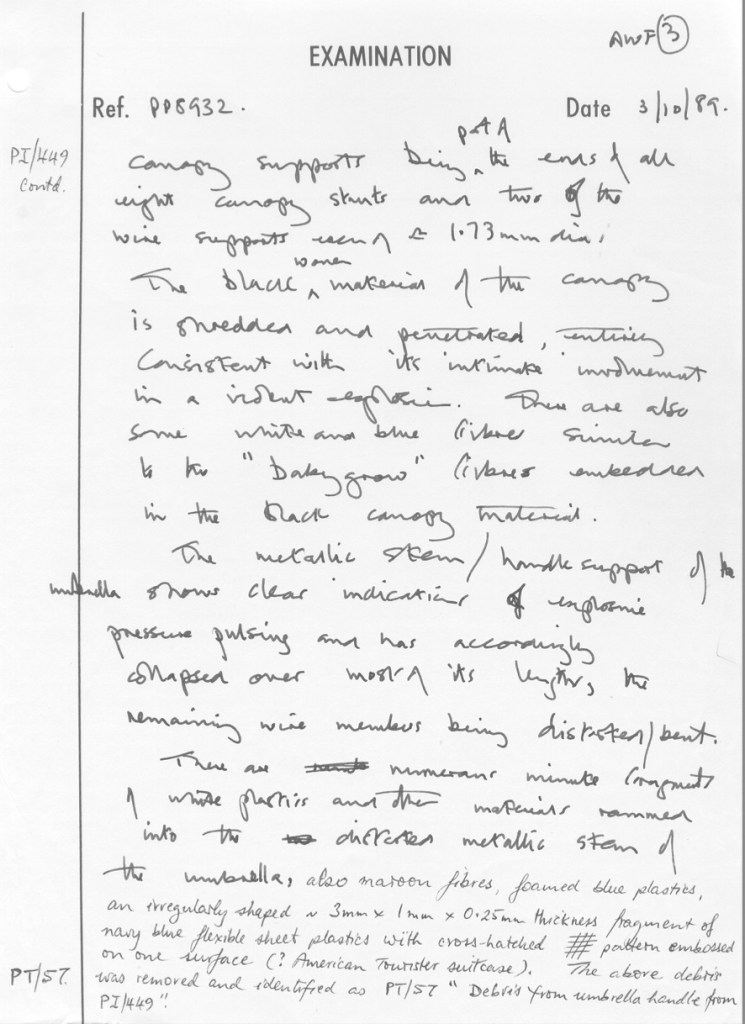 AWF 3
EXAMINATION
Ref. PP8932. Date 3/10/89.
part of
PI/449 canopy supports being ^ the ends of all
Contd. eight canopy struts and two of the
wire supports each of ≏ 1.73mm dia.
woven
The black ^ material of the canopy
is shredded and penetrated, entirely
consistent with its intimate involvement
in a violent explosion. There are also
some white and blue fibres similar
to the "babygrow" fibres embedded
in the black canopy material.
The metallic stem/handle support of the
umbrella shows clear indications of explosive
pressure pulsing and has accordingly
collapsed over most of its length, the
remaining wire members being distorted/bent.
There are numerous minute fragments
of white plastics and other materials rammed
into the distorted metallic stem of
the umbrella, also maroon fibres, foamed blue plastics,
an irregularly shaped ~ 3mm x 1mm x 0.25mm thickness fragment of
navy blue flexible sheet plastics with cross-hatched # pattern embossed
on one surface (? American Tourister suitcase). The above debris
PT/57. was removed and identified as PT/57 "Debris from umbrella handle from
PI/449".